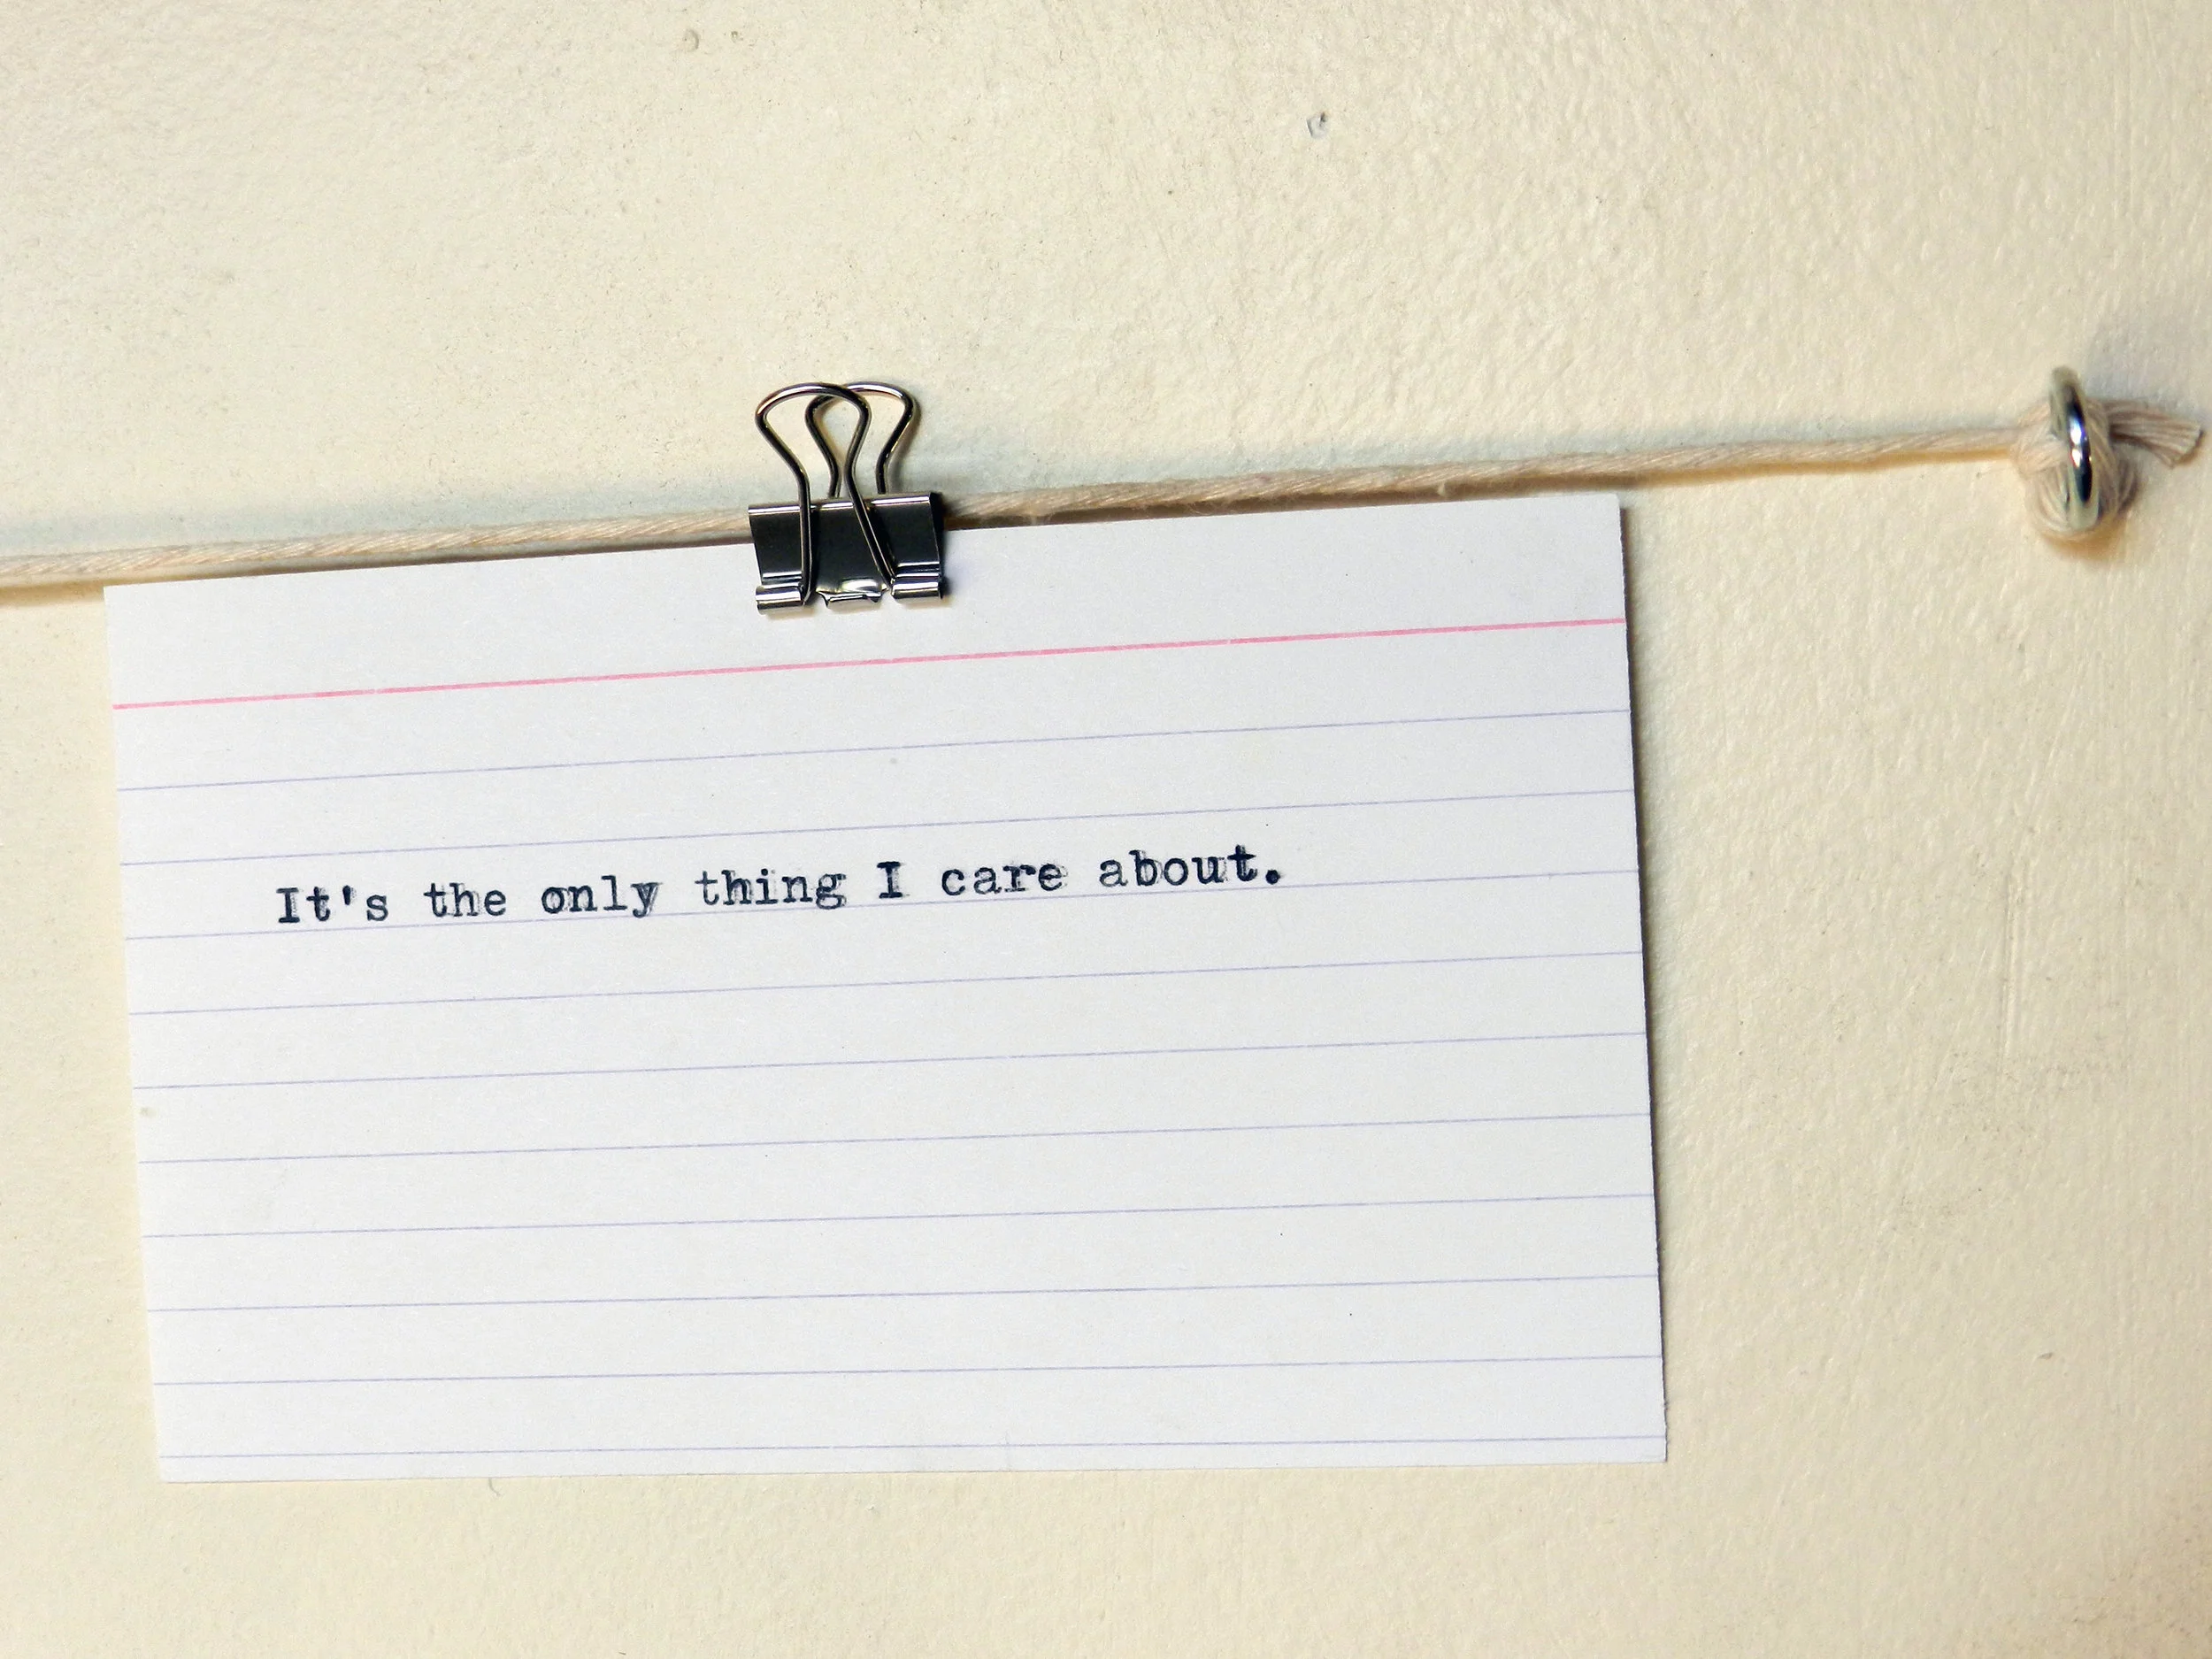 It's the only thing I care about.